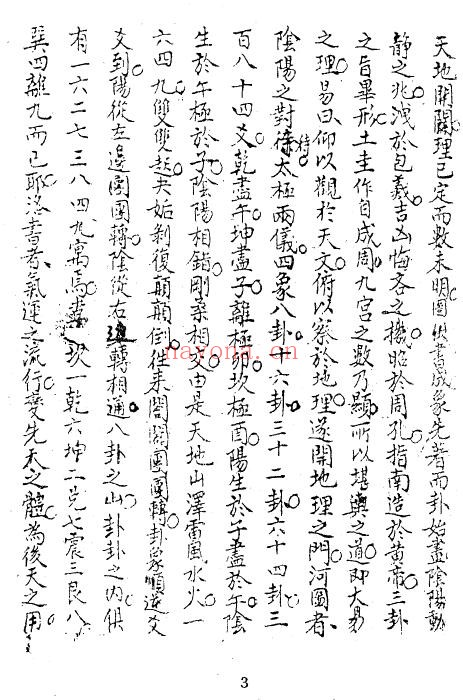 天地開闢理已定而數未明圖似書成象先著而卦始畫陰陽動
静之兆洩於包羲吉凶悔吝之機昭於周孔指南造於黄帝三卦
之旨畢形土圭作自成周九宮之數乃顯所以堪輿之道即大易
之理易曰仰以觀於天文俯以察於地理遂開地理之門河圖者
陰陽之對待太極兩儀四象八卦十六卦三十二卦六十四卦三
百八十四爻乾盡午坤盡子離極卯坎極酉陽生於子盡於午陰
生於午極於子陰陽相錯剛柔相交由是天地山澤雷風水火一
六四九雙雙起夬姤剝復顛顛倒往來闔闢團團轉卦象順逆爻
爻到陽從左邊團團轉陰從右邊轉相通八卦之山卦卦之内俱
有一六二七三八四九寓焉坎一乾六坤二兑七震三艮八
巽四離九而已耶洛書者氣運之流行变先天之體為後天之用
nayona.cn
3